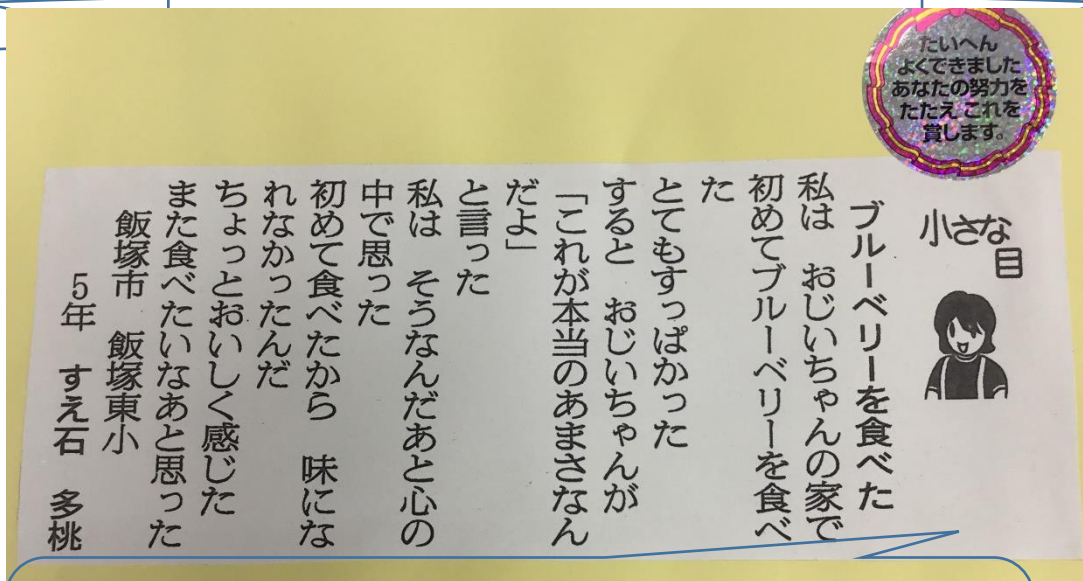 たいへん
よくできました
あなたの努力を
たたえ これを
賞します。
小さな目
ブルーベリーを食べた
私は　おじいちゃんの家で
初めてブルーベリーを食べ
た
とてもすっぱかった
すると　おじいちゃんが
「これが本当のあまさなん
だよ」
と言った
私は　そうなんだあと心の
中で思った
初めて食べたから　味にな
れなかったんだ
ちょっとおいしく感じた
また食べたいなあと思った
飯塚市　飯塚東小
5年　すえ石　多桃